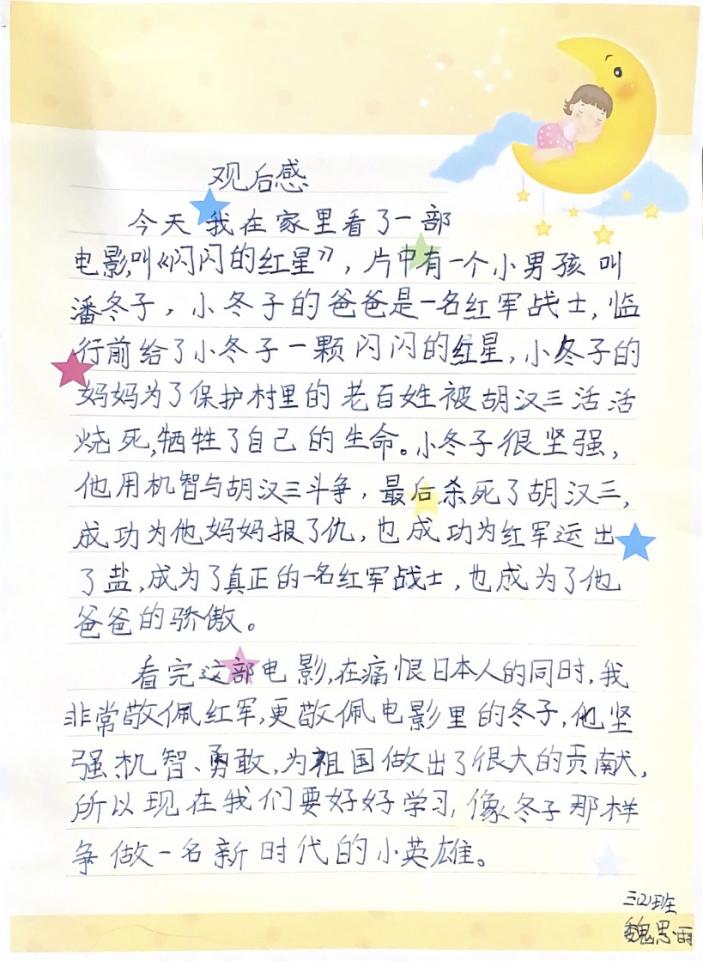 观后感
今天我在家里看了一部
电影,叫《闪闪的红星》，片中有一个小男孩叫
潘冬子，小冬子的爸爸是一名红军战士，临
行前给了小冬子一颗闪闪的红星，小冬子的
妈妈为了保护村里的老百姓被胡汉三活活
烧死,牺牲了自己的生命。小冬子很坚强，
他用机智与胡汉三斗争，最后杀死了胡汉三，
成功为他妈妈报了仇，也成功为红军运出
了盐,成为了真正的一名红军战士，也成为了他
爸爸的骄傲。
看完这部电影,在痛恨日本人的同时,我
非常敬佩红军,更敬佩电影里的冬子,他坚
强、机智、勇敢,为祖国做出了很大的贡献,
所以现在我们要好好学习,像冬子那样
争做一名新时代的小英雄。
三(2)班
魏思雨